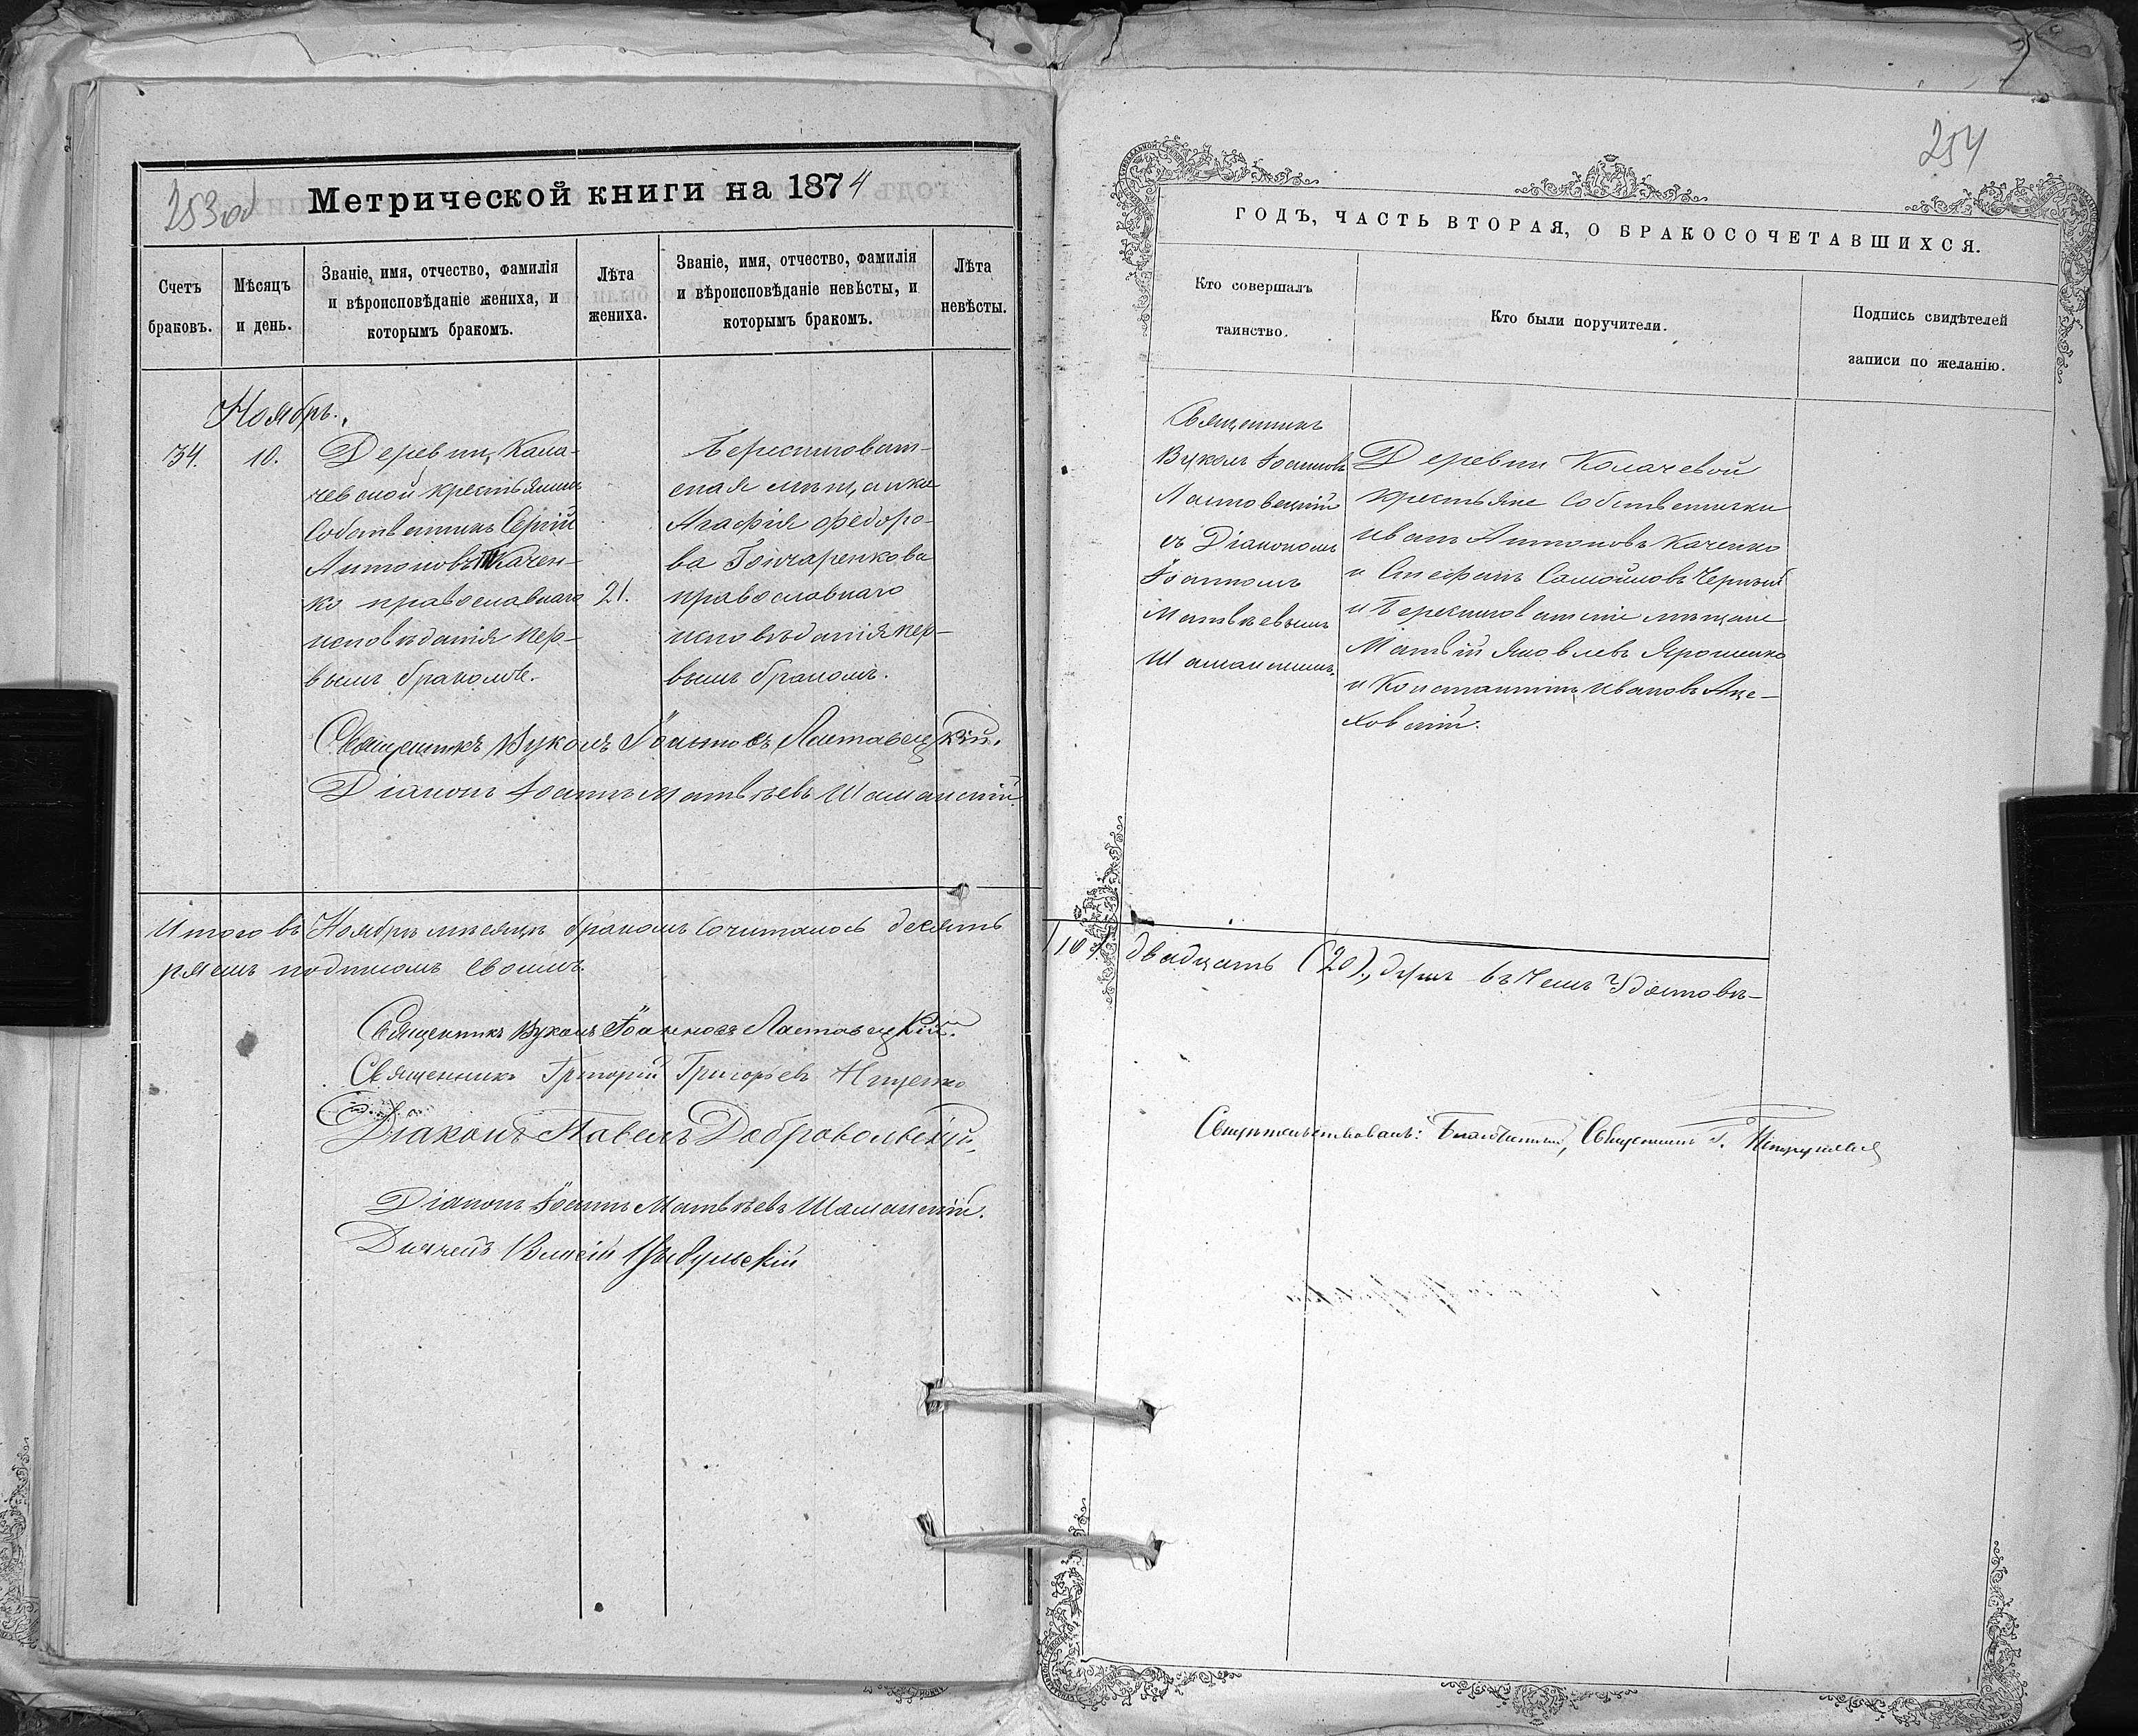 253об
Метрической книги на 1874
Счетъ браковъ.
Мѣсяцъ и день.
Званіе, имя, отчество, фамилія и вѣроисповѣданіе жениха, и которымъ бракомъ.
Лѣта жениха.
Званіе, имя, отчество, фамилія и вѣроисповѣданіе невѣсты, и которымъ бракомъ.
Лѣта невѣсты.
Ноябрь.
34.
10.
Деревни Кала-
чевской крестьянинъ
собственникъ Сергій
Антоновъ Ткачен-
ко православнаго
исповѣданія пер-
вымъ бракомъ.
21.
Берестоват-
ская мѣщанка
Агафія Ѳедоро-
ва Гончаренкова
православнаго
исповѣданія пер-
вымъ бракомъ.
Священникъ Вуколъ Іоанновъ Ластовецкій.
Діаконъ Іоаннъ Матвѣевъ Шаманскій.
Итого въ Ноябрѣ мѣсяцѣ бракомъ сочиталось десять
ряемъ подписомъ своимъ.
Священникъ Вуколъ Іоанновъ Ластовецкій.
Священникъ Григорій Григорьевъ
Діаконъ Павелъ Добровольскій.
Діаконъ Іоаннъ Матвѣевъ Шаманскій.
Дьячекъ Цыбульскій
254
ГОДЪ, ЧАСТЬ ВТОРАЯ, О БРАКОСОЧЕТАВШИХСЯ.
Кто совершалъ таинство.
Кто были поручители.
Подпись свидѣтелей записи по желанію.
Священникъ
Вуколъ Іоанновъ
Ластовецкій
съ Діакономъ
Іоанномъ
Матвѣевымъ
Шаманскимъ.
Деревни Калачевой
крестьяне собственники
Иванъ Антоновъ Каченко
и Стефанъ Самойловъ Черный
и Берестоватскіе мѣщане
Матвій Яковлевъ Ярошенко
и Константинъ Ивановъ Аце-
ховскій.
(10) двадцать (20), душъ въ чемъ удостовѣ-
Свидѣтельствовалъ: Благочинный, Священникъ Г.